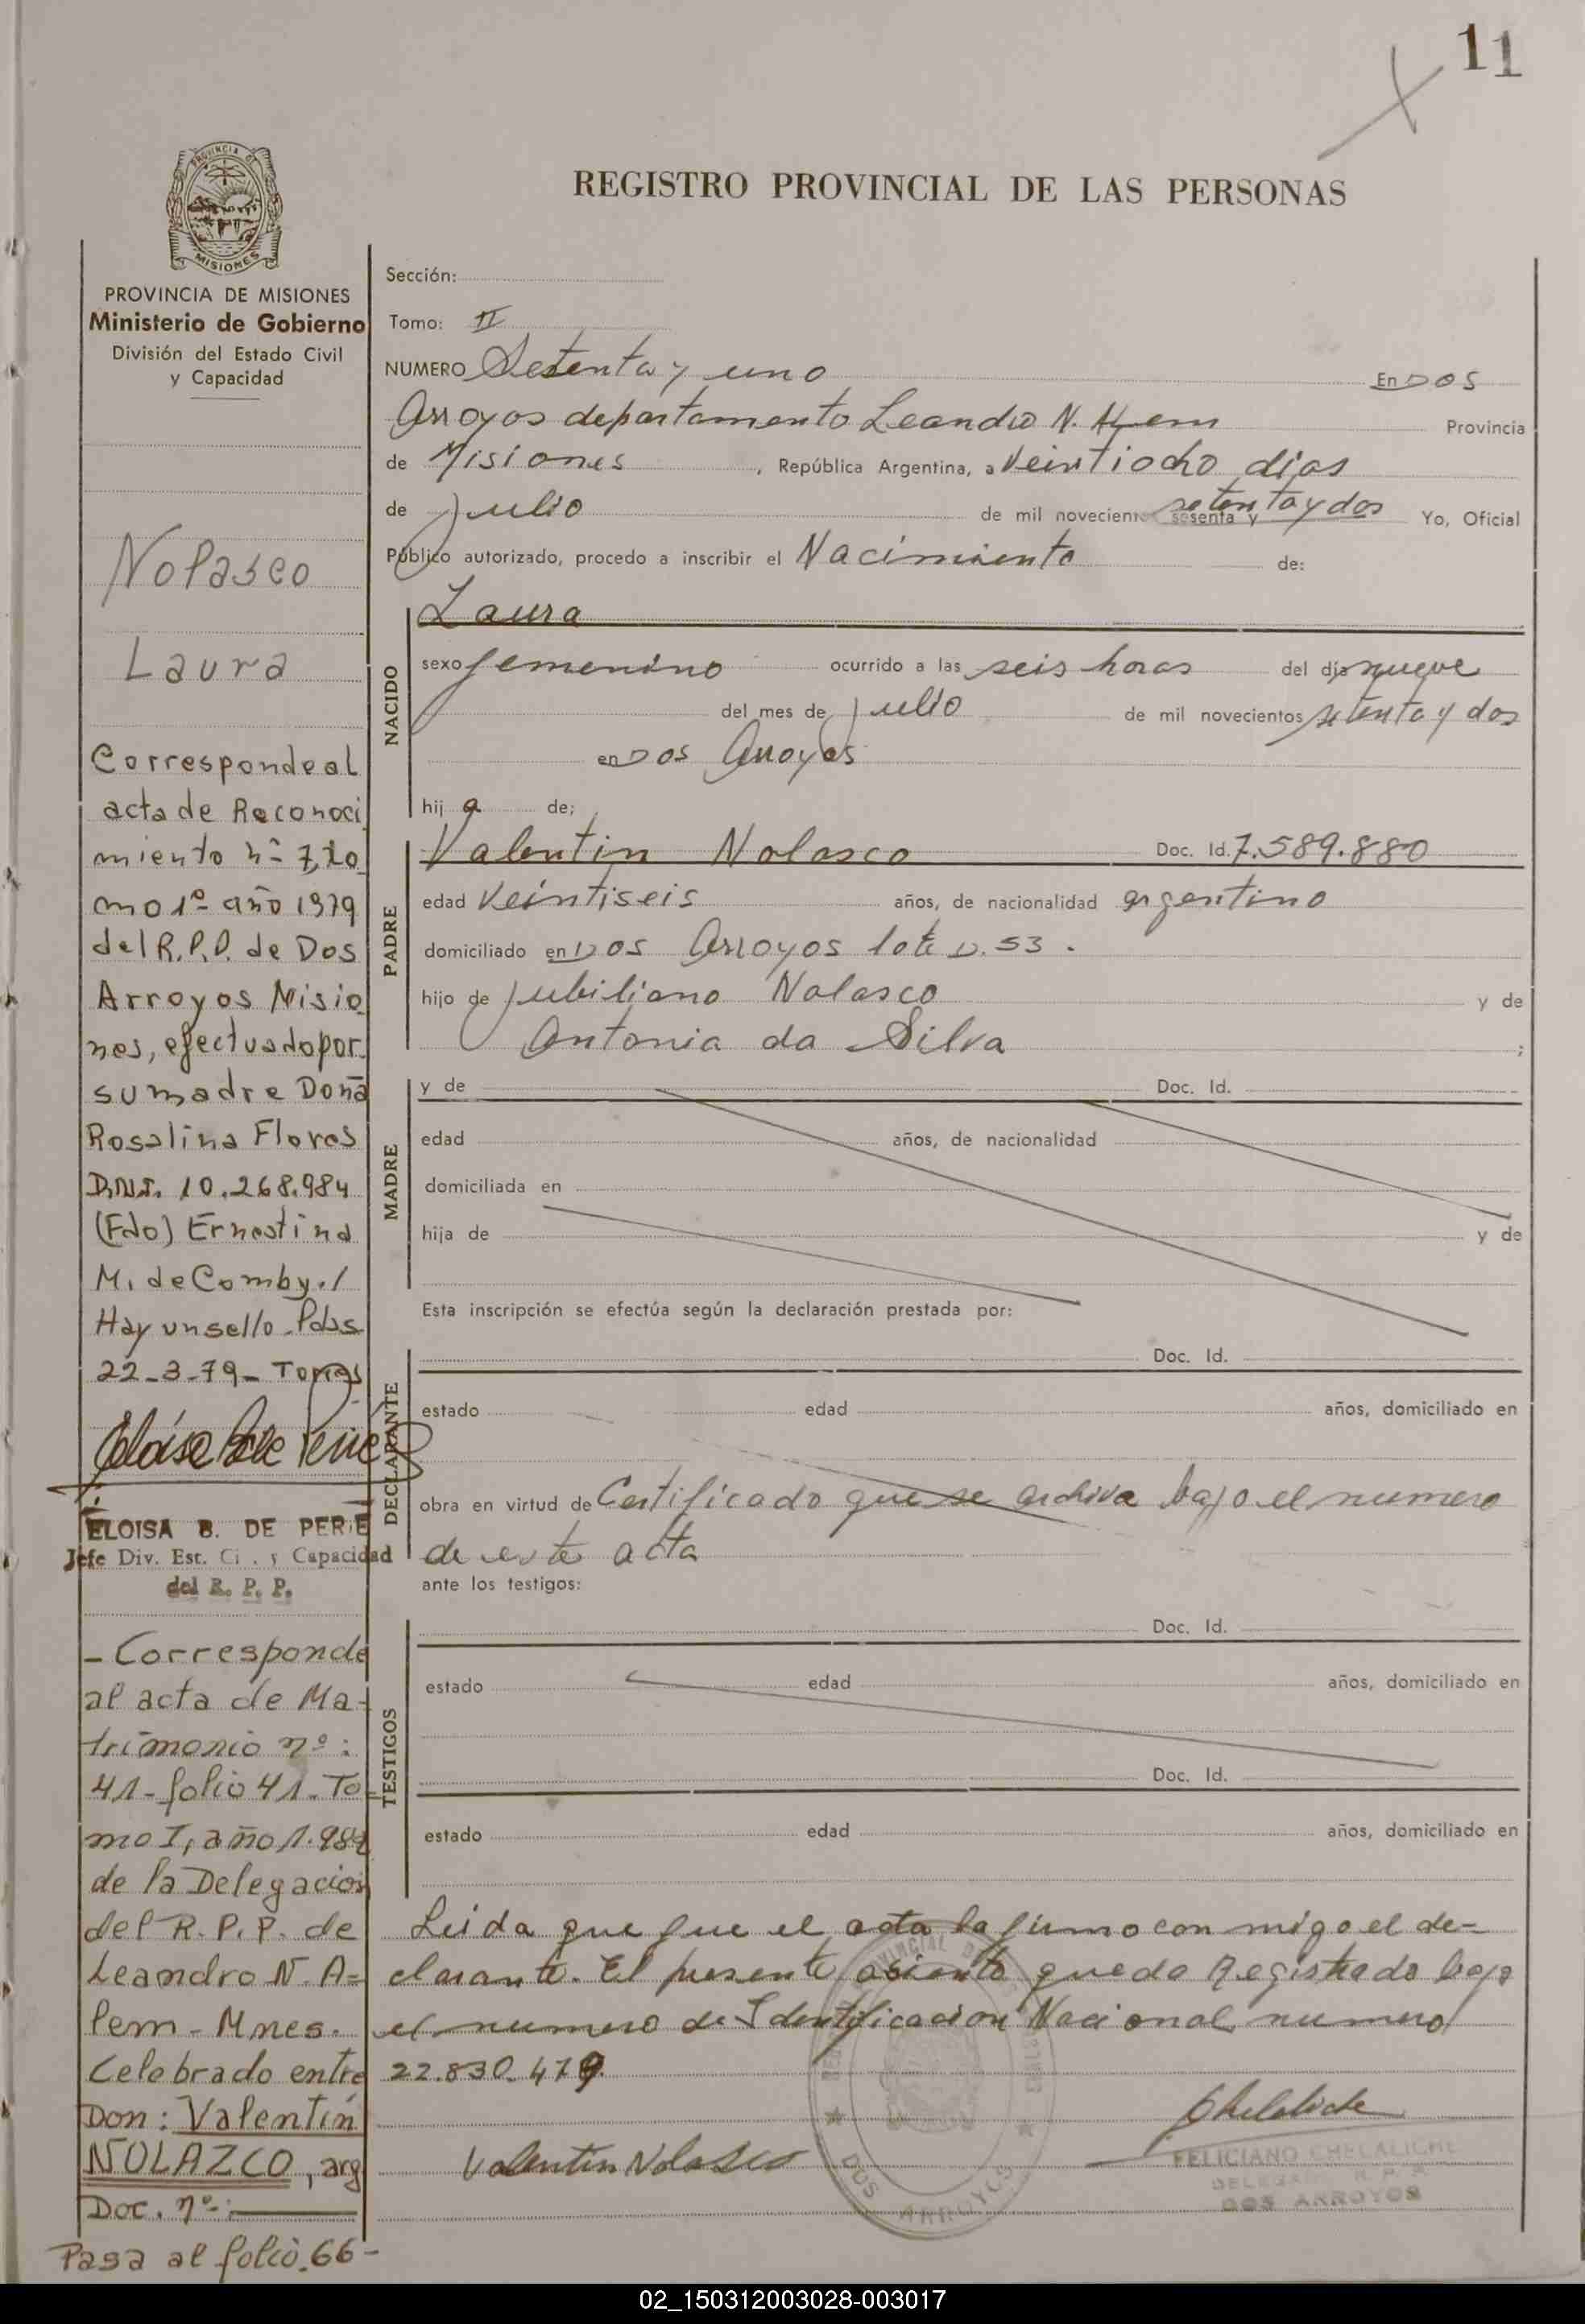 11
REGISTRO PROVINCIAL DE LAS PERSONAS
PROVINCIA DE MISIONES
PROVINCIA DE MISIONES
Ministerio de Gobierno
División del Estado Civil
y Capacidad
Nolasco
Laura
Corresponde al
acta de Reconoci
miento nº 7, to
mo 1º año 1979
del R.P.P. de Dos
Arroyos Misio
nes, efectuado por
su madre Doña
Rosalina Flores
D.N.I. 10.268.984
(Fdo) Ernestina
M. de Comby./
Hay un sello. Pdas
22-3-79- Torres
ELOISA B. DE PERIE
Jefe Div. Est. Ci . y Capacidad
del R. P. P.
- Corresponde
al acta de Ma-
trimonio nº:
41- folio 41- To-
mo I, año 1.989
de la Delegación
del R.P.P. de
Leandro N. A=
lem - Mnes.
Celebrado entre
Don: Valentín
NOLAZCO, arg
Doc. nº:
Pasa al folio 66-
Sección:
Tomo: II
NUMERO Setenta y uno En Dos
Arroyos departamento Leandro N. Alem Provincia
de Misiones , República Argentina, a Veintiocho dias
de Julio de mil novecientos sesenta y setenta y dos Yo, Oficial
Público autorizado, procedo a inscribir el Nacimiento de:
NACIDO
Laura
sexo femenino ocurrido a las seis horas del día nueve
del mes de julio de mil novecientos setenta y dos
en Dos Arroyos
hij a de;
PADRE
Valentin Nolasco Doc. Id. 7.589.880
edad Veintiseis años, de nacionalidad argentino
domiciliado en Dos Arroyos lote D. 53 .
hijo de Jubiliano Nolasco y de
Antonia da Silva ;
MADRE
y de Doc. Id.
edad años, de nacionalidad
domiciliada en
hija de y de
Esta inscripción se efectúa según la declaración prestada por:
DECLARANTE
Doc. Id.
estado edad años, domiciliado en
obra en virtud de Certificado que se archiva bajo el numero
de este acta
ante los testigos:
TESTIGOS
Doc. Id.
estado edad años, domiciliado en
Doc. Id.
estado edad años, domiciliado en
Leida que fue el acta la firmo con migo el de-
clarante. El presente asiento queda Registrado bajo
el numero de Identificacion Nacional numero
22.830.479
Valentin Nolasco
DOS ARROYOS
FELICIANO CHELALICHE
DELEGADO R. P. P.
DOS ARROYOS
02_150312003028-003017